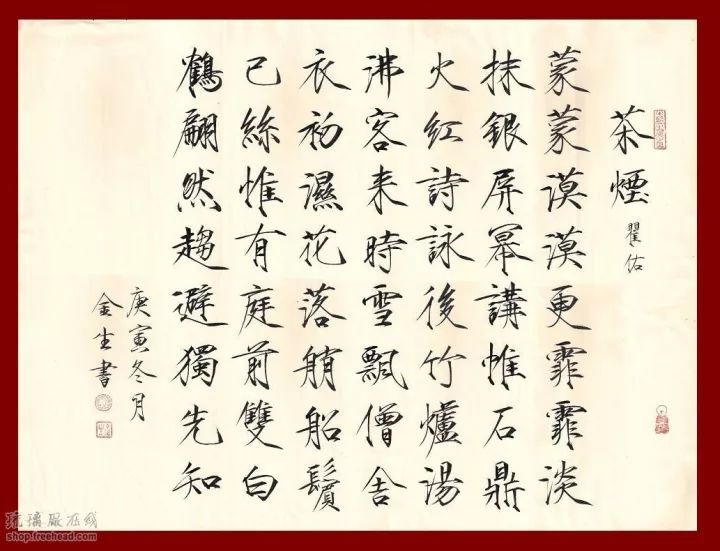 茶煙 瞿佑
蒙蒙漠漠更霏霏淡
抹銀屏冪講惟石鼎
火紅詩詠後竹爐湯
沸客来時雪飄僧舍
衣初濕花落艄船鬢
已絲惟有庭前雙白
鶴翩然趨避獨先知
庚寅冬月
金生書
琉璃厰在线
shop.freehead.com